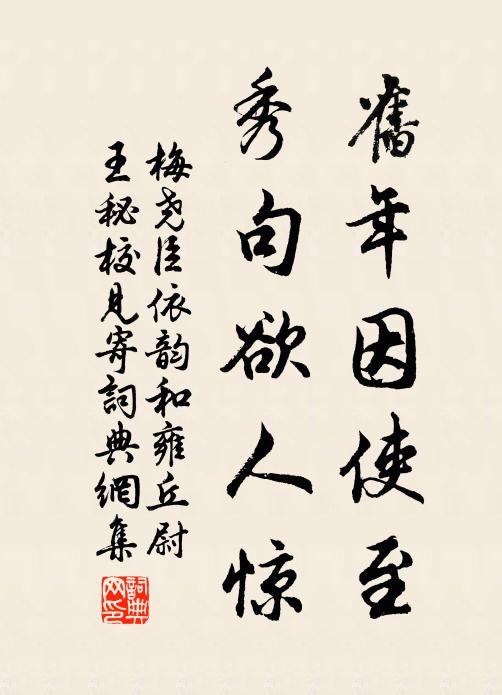 舊年因使至
秀句欲人惊
梅尧臣依韵和雍丘尉
王秘校見寄詞典網集
詞典網印